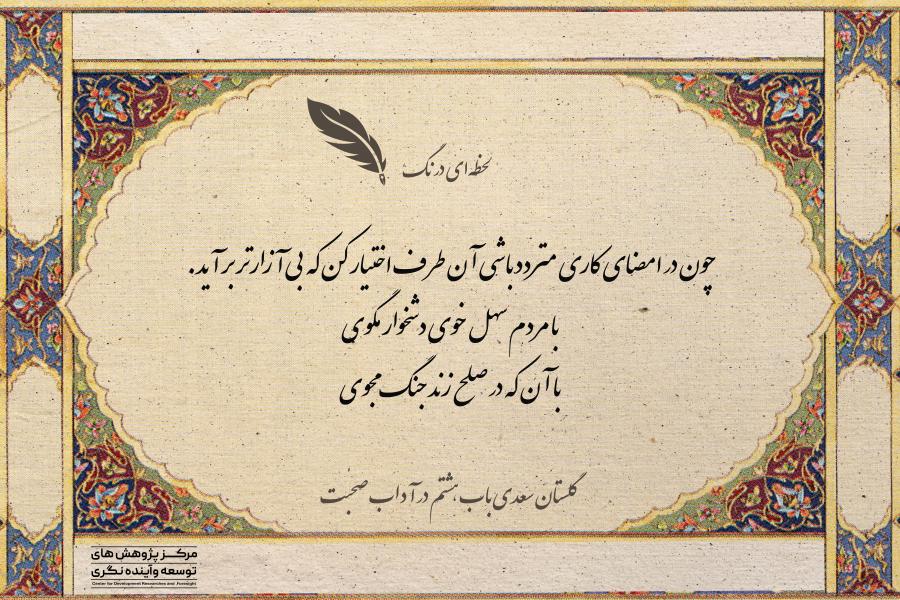 لحظه‌ای درنگ
چون در امضای کاری متردد باشی آن طرف اختیار کن که بی آزارتر برآید.
با مردم سهل خوی دشخوار مگوی
با آن که در صلح زند جنگ مجوی
گلستان سعدی باب هشتم در آداب صحبت
مرکز پژوهش های
توسعه و آینده نگری
Center for Development Researches and Foresight